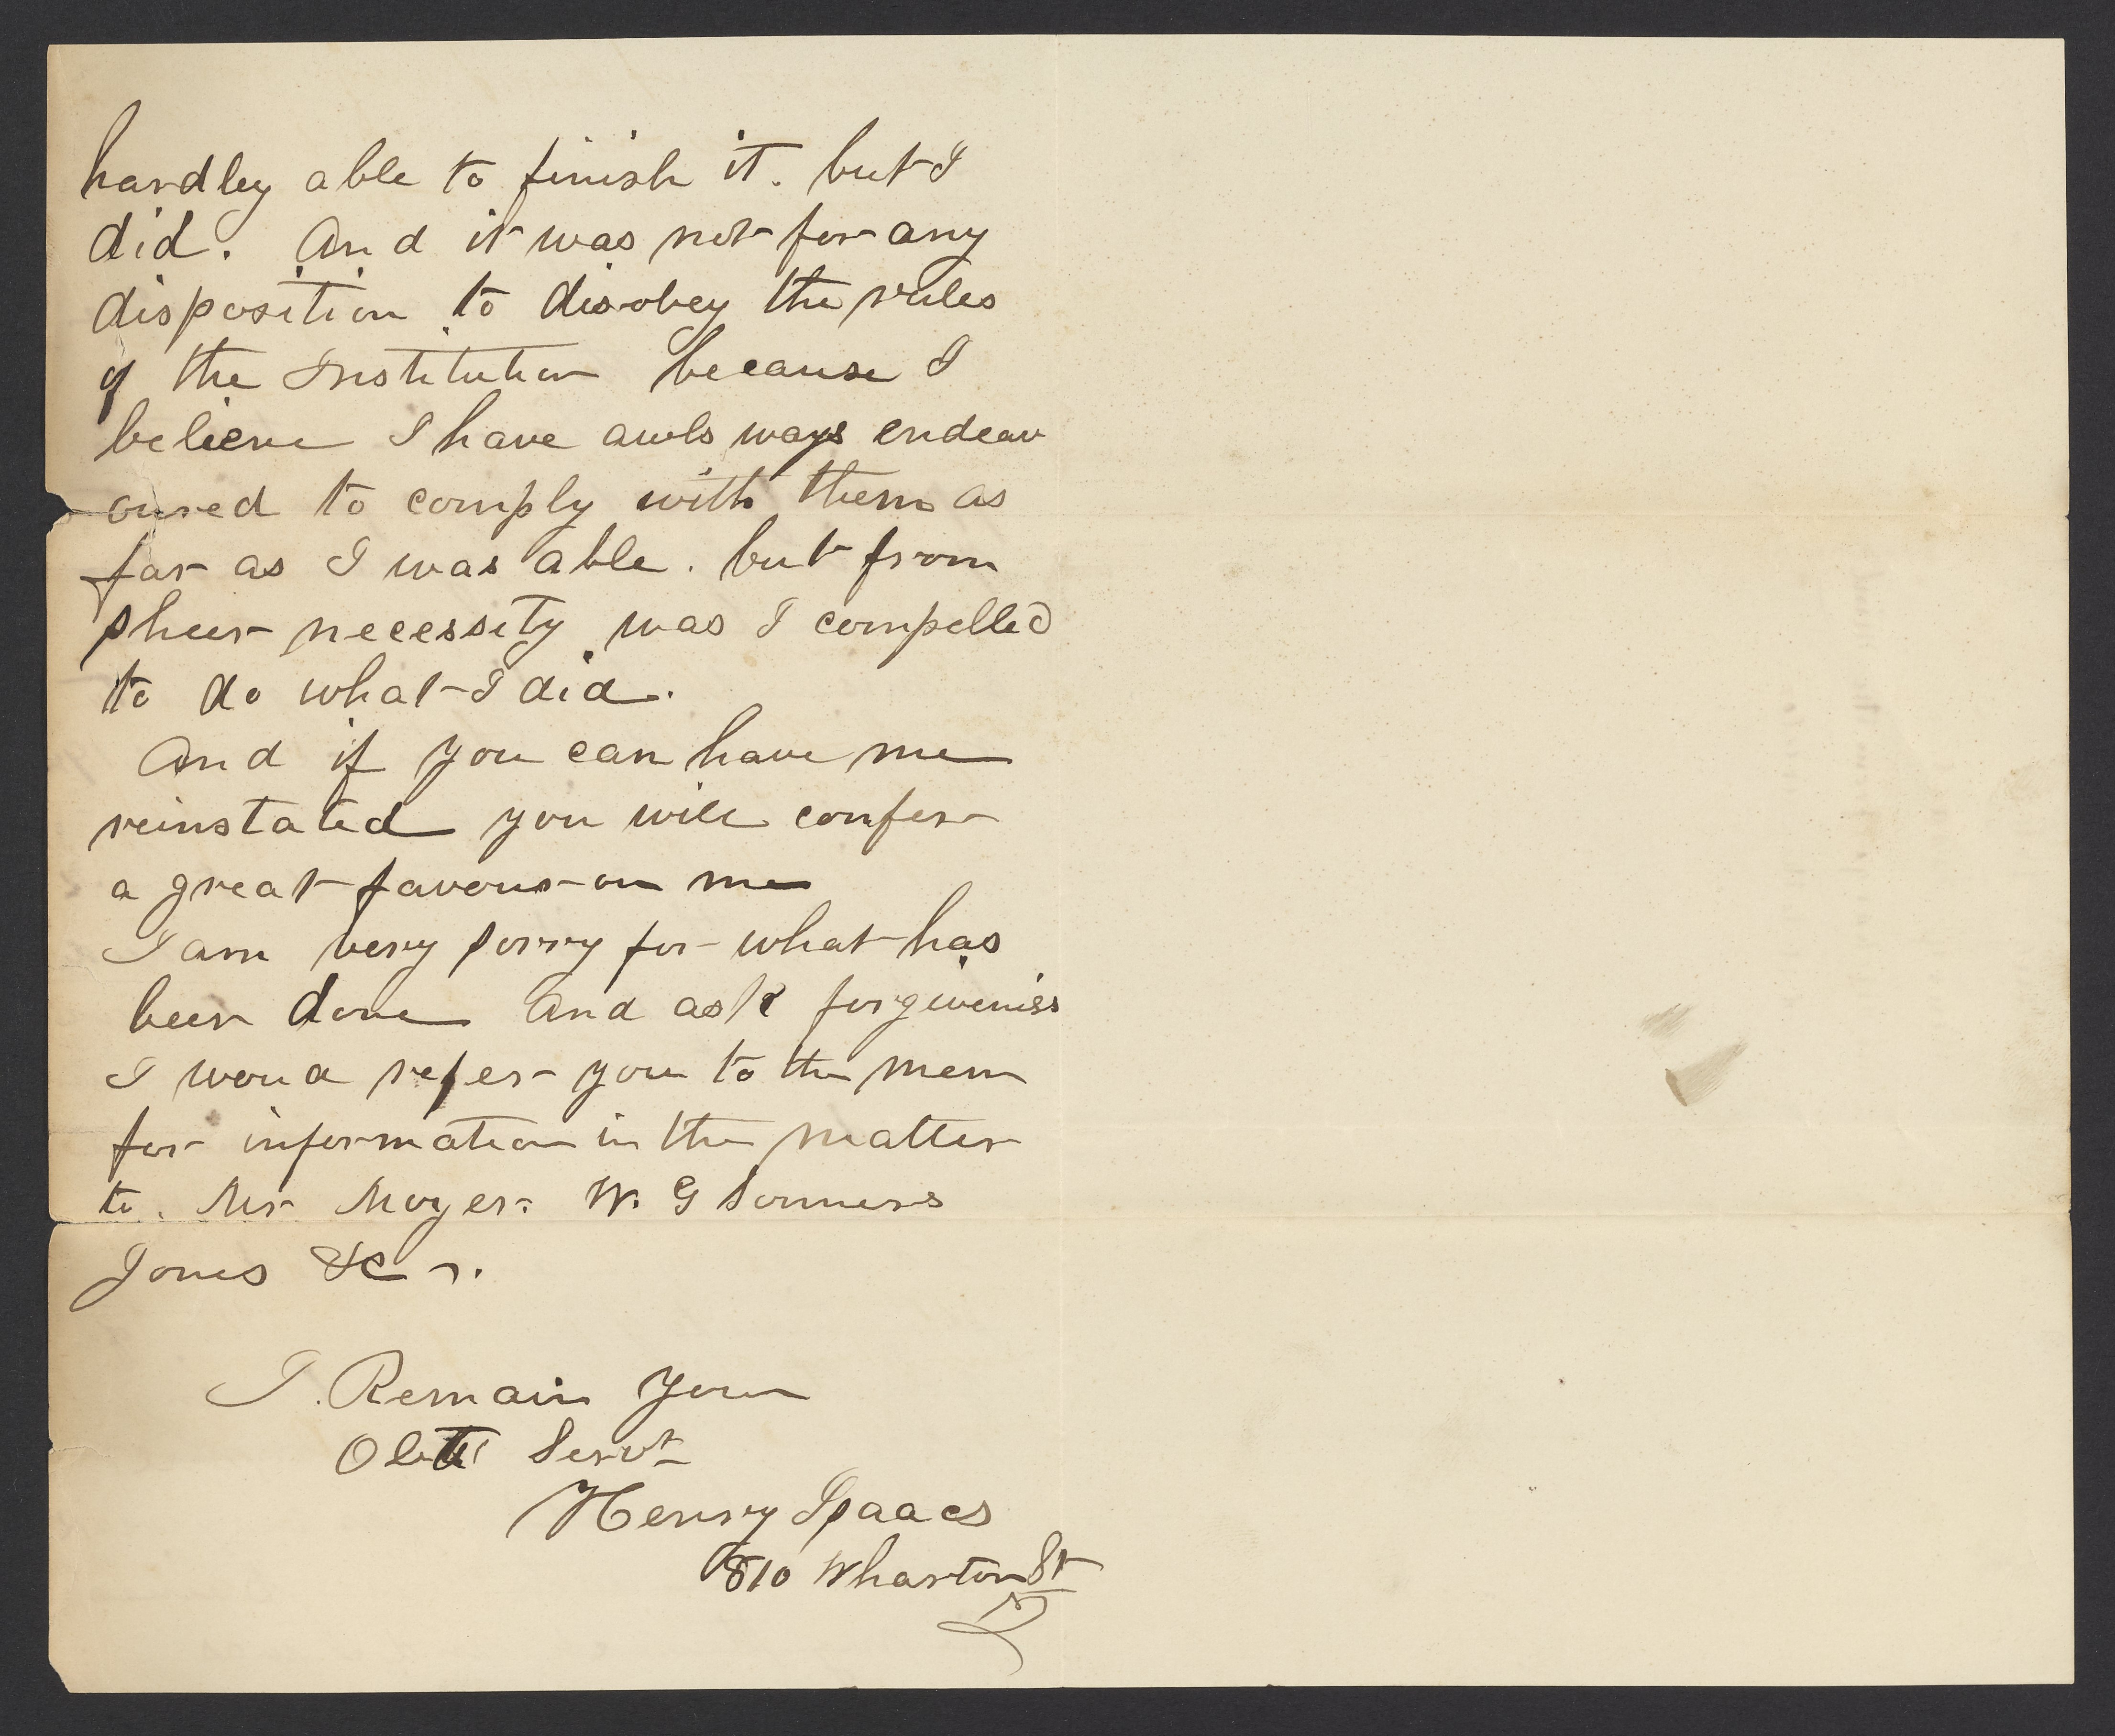 hardley able to finish it. but I
did. And it was not for any
disposition to disobey the rules
of the Institution because I
believe I have awls ways endeav
oured to comply with them as
far as I was able. but from
sheer necessity was I compelled
to do what I did.
And if you can have me
reinstated you will confer
a great favour on me
I am very sorry for what has
been done And ask forgiveniss
I woud refer you to the men
for information in the matter
to. Mr Moyer. W. G Sonners
Jones &c
I. Remain your
Servt
Henry Isaacs
810 Wharton St